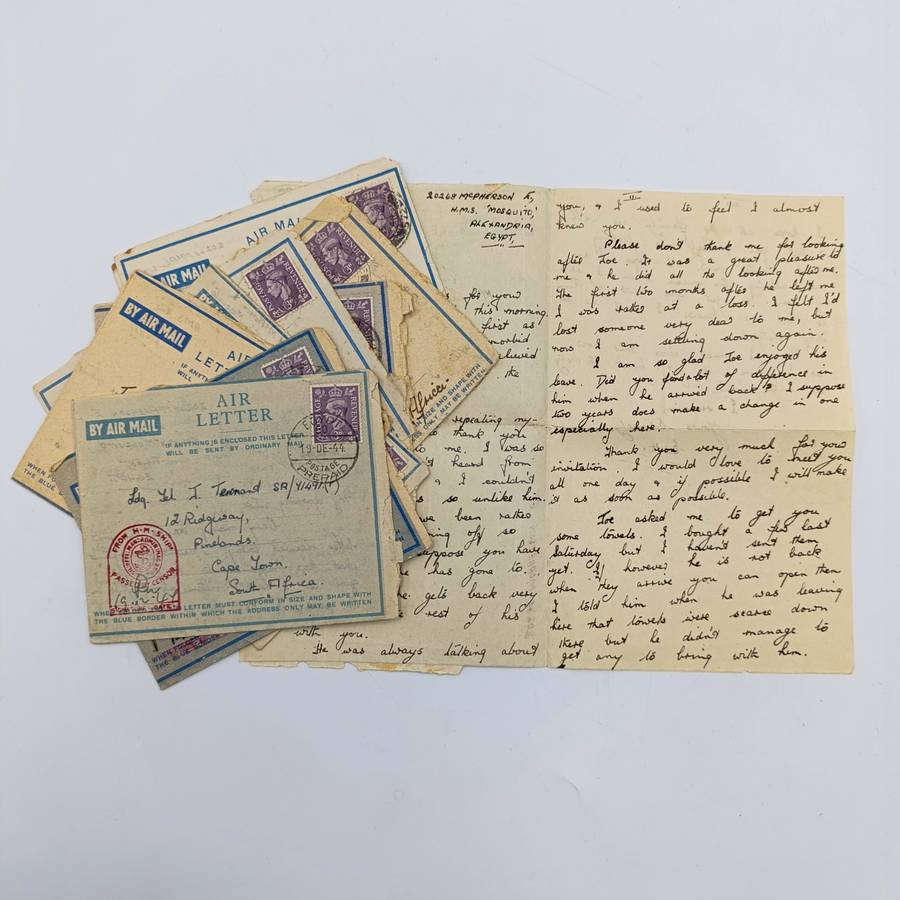 AIR MAIL
BY AIR MAIL
BY AIR MAIL
AIR
BY AIR MAIL
AIR
LETTER
IF ANYTHING IS ENCLOSED THIS LETTER
WILL BE SENT BY ORDINARY MAIL
POSTAGE
REVENUE
19-DE-44
PREPAID
Ldg. Tel J. Tennant SR/
12 Ridgway,
Pinelands.
Cape Town.
South Africa.
FROM H.M. SHIP
PASSED CENSOR
LETTER MUST CONFORM IN SIZE AND SHAPE WITH
THE BLUE BORDER WITHIN WHICH THE ADDRESS ONLY MAY BE WRITTEN
POSTAGE
REVENUE
IN SIZE AND SHAPE WITH
ONLY MAY BE WRITTEN
MCPHERSON
H.M.S. 'MOSQUITO',
ALEXANDRIA,
EGYPT.
for you
this morning.
first as
morbid
the
repeating my-
thank you
to me. I was so
heard from
& I couldn't
so unlike him.
been rather
off so
suppose you have
he has gone to.
he gets back very
rest of his
with you.
He was always talking about
II
you, & I used to feel I almost
knew you.
Please don't thank me for looking
after Joe. It was a great pleasure to
me & he did all the looking after me.
The first two months after he left me
I was rather at a loss. I felt I'd
lost someone very dear to me, but
now I am settling down again.
I am so glad Joe enjoyed his
leave. Did you find a lot of difference in
him when he arrived back? I suppose
two years does make a change in one
especially here.
Thank you very much for your
invitation. I would love to meet you
all one day & if possible I will make
it as soon as possible.
Joe asked me to get you
some towels. I bought a few last
Saturday but I haven't sent them
yet. If however he is not back
when they arrive you can open them
I told him when he was leaving
here that towels were scarce down
there but he didn't manage to
get any to bring with him.